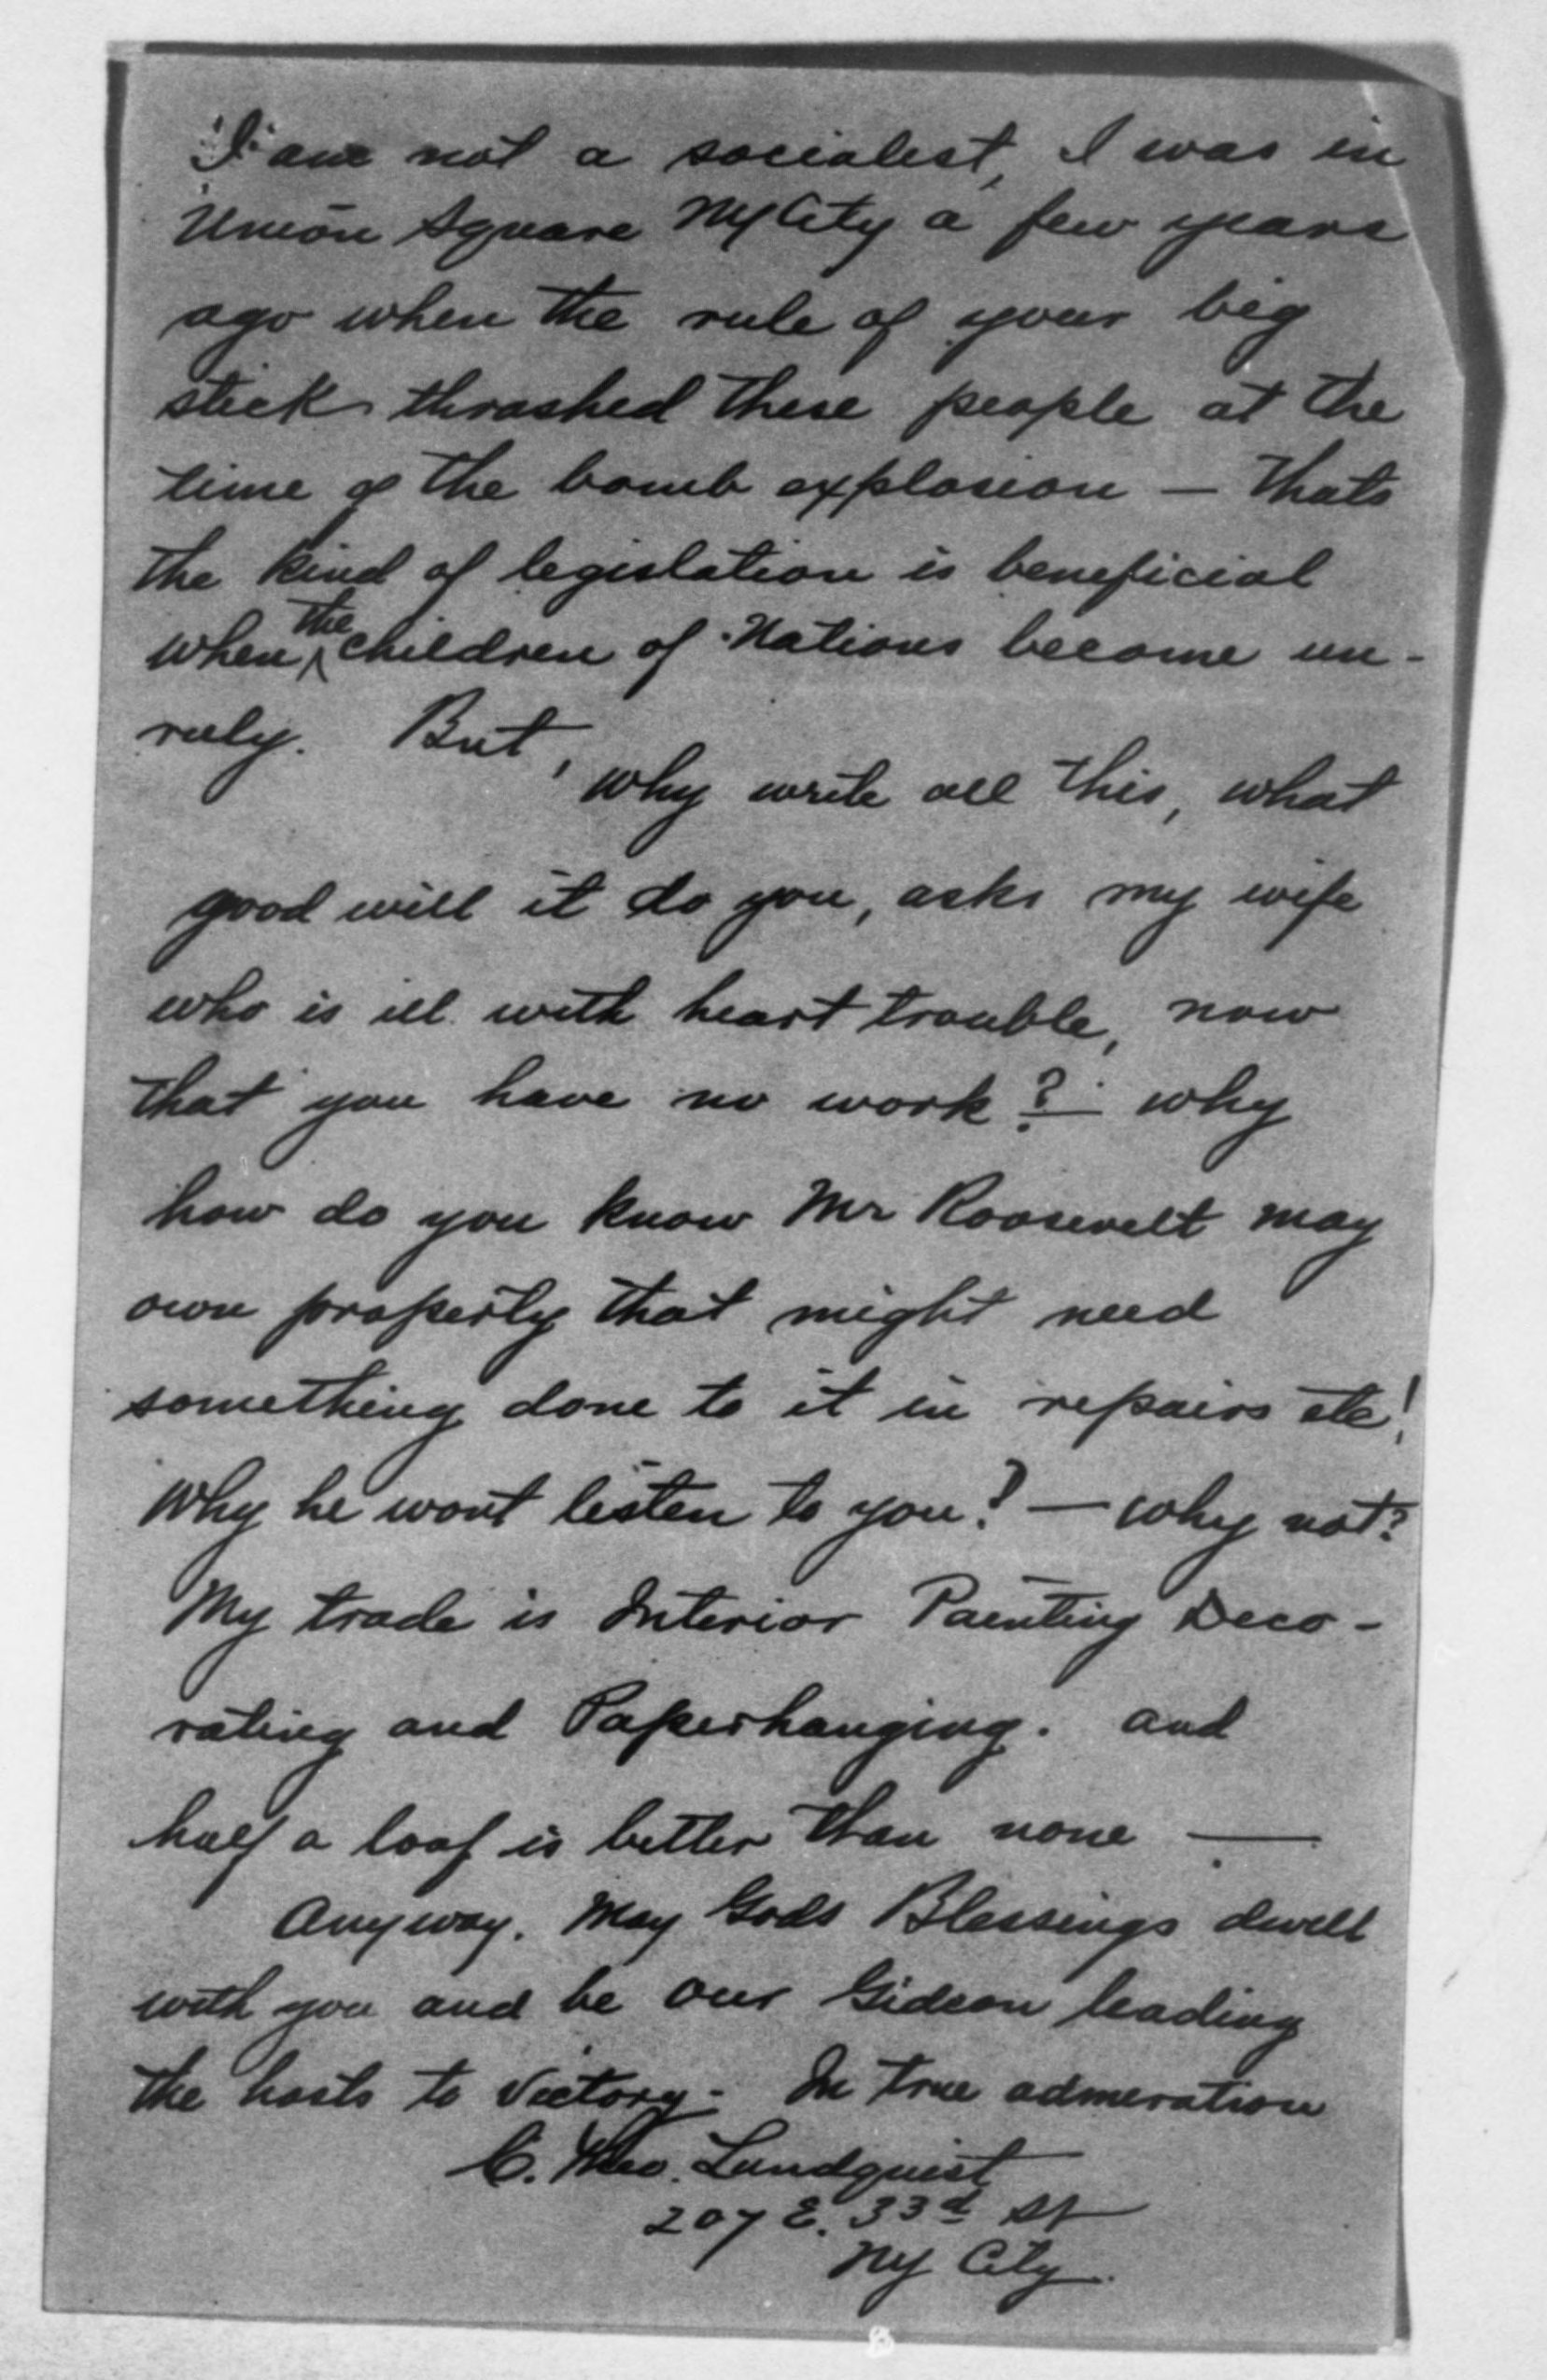 I am not a socialist, I was in
Union Square NY City a few years
ago when the rule of your big
stick thrashed these people at the
time of the bomb explosion — thats
the kind of legislation is beneficial
when the children of Nations become un-
ruly. But,
why write all this, what
good will it do you, asks my wife
who is ill with heart trouble, now
that you have no work? — why
how do you know Mr Roosevelt may
own property that might need
something done to it in repairs etc!
Why he wont listen to you? — why not?
My trade is Interior Painting Deco-
rating and Paperhanging. and
half a loaf is better than none —
Anyway. May Gods Blessings dwell
with you and be our Gideon leading
the hosts to Victory - In true admeration
C. Theo. Lundquist
207 E. 33d St
NY City.
8